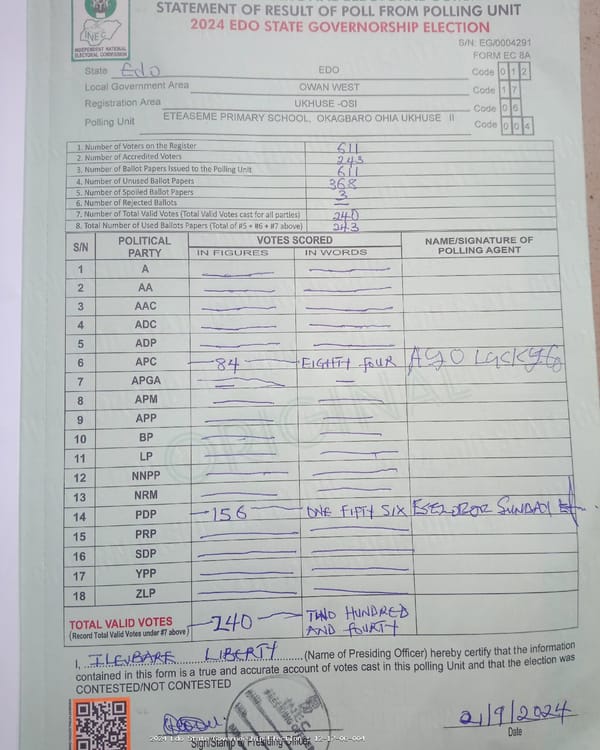 INEC
INDEPENDENT NATIONAL
ELECTORAL COMMISSION
STATEMENT OF RESULT OF POLL FROM POLLING UNIT
2024 EDO STATE GOVERNORSHIP ELECTION
S/N: EG/0004291
FORM EC 8A
State Edo EDO Code 0 1 2
Local Government Area OWAN WEST Code 1 7
Registration Area UKHUSE -OSI Code 0 6
Polling Unit ETEASEME PRIMARY SCHOOL, OKAGBARO OHIA UKHUSE II Code 0 0 4
1. Number of Voters on the Register 611
2. Number of Accredited Voters 243
3. Number of Ballot Papers Issued to the Polling Unit 611
4. Number of Unused Ballot Papers 368
5. Number of Spoiled Ballot Papers 3
6. Number of Rejected Ballots —
7. Number of Total Valid Votes (Total Valid Votes cast for all parties) 240
8. Total Number of Used Ballots Papers (Total of #5 + #6 + #7 above) 243
S/N POLITICAL PARTY VOTES SCORED NAME/SIGNATURE OF POLLING AGENT
IN FIGURES IN WORDS
1 A
2 AA
3 AAC
4 ADC
5 ADP
6 APC 84 EIGHTY FOUR AYO LUCKY
7 APGA
8 APM
9 APP
10 BP
11 LP
12 NNPP
13 NRM
14 PDP 156 ONE FIFTY SIX SUNDAY
15 PRP
16 SDP
17 YPP
18 ZLP
ORIGINAL
TOTAL VALID VOTES 240 TWO HUNDRED
(Record Total Valid Votes under #7 above) AND FOURTY
I, ILEVBARE LIBERTY (Name of Presiding Officer) hereby certify that the information
contained in this form is a true and accurate account of votes cast in this polling Unit and that the election was
CONTESTED/NOT CONTESTED
21/9/2024
Sign/Stamp of Presiding Officer Date
2024 Edo State Governorship Election: 12-17-06-004